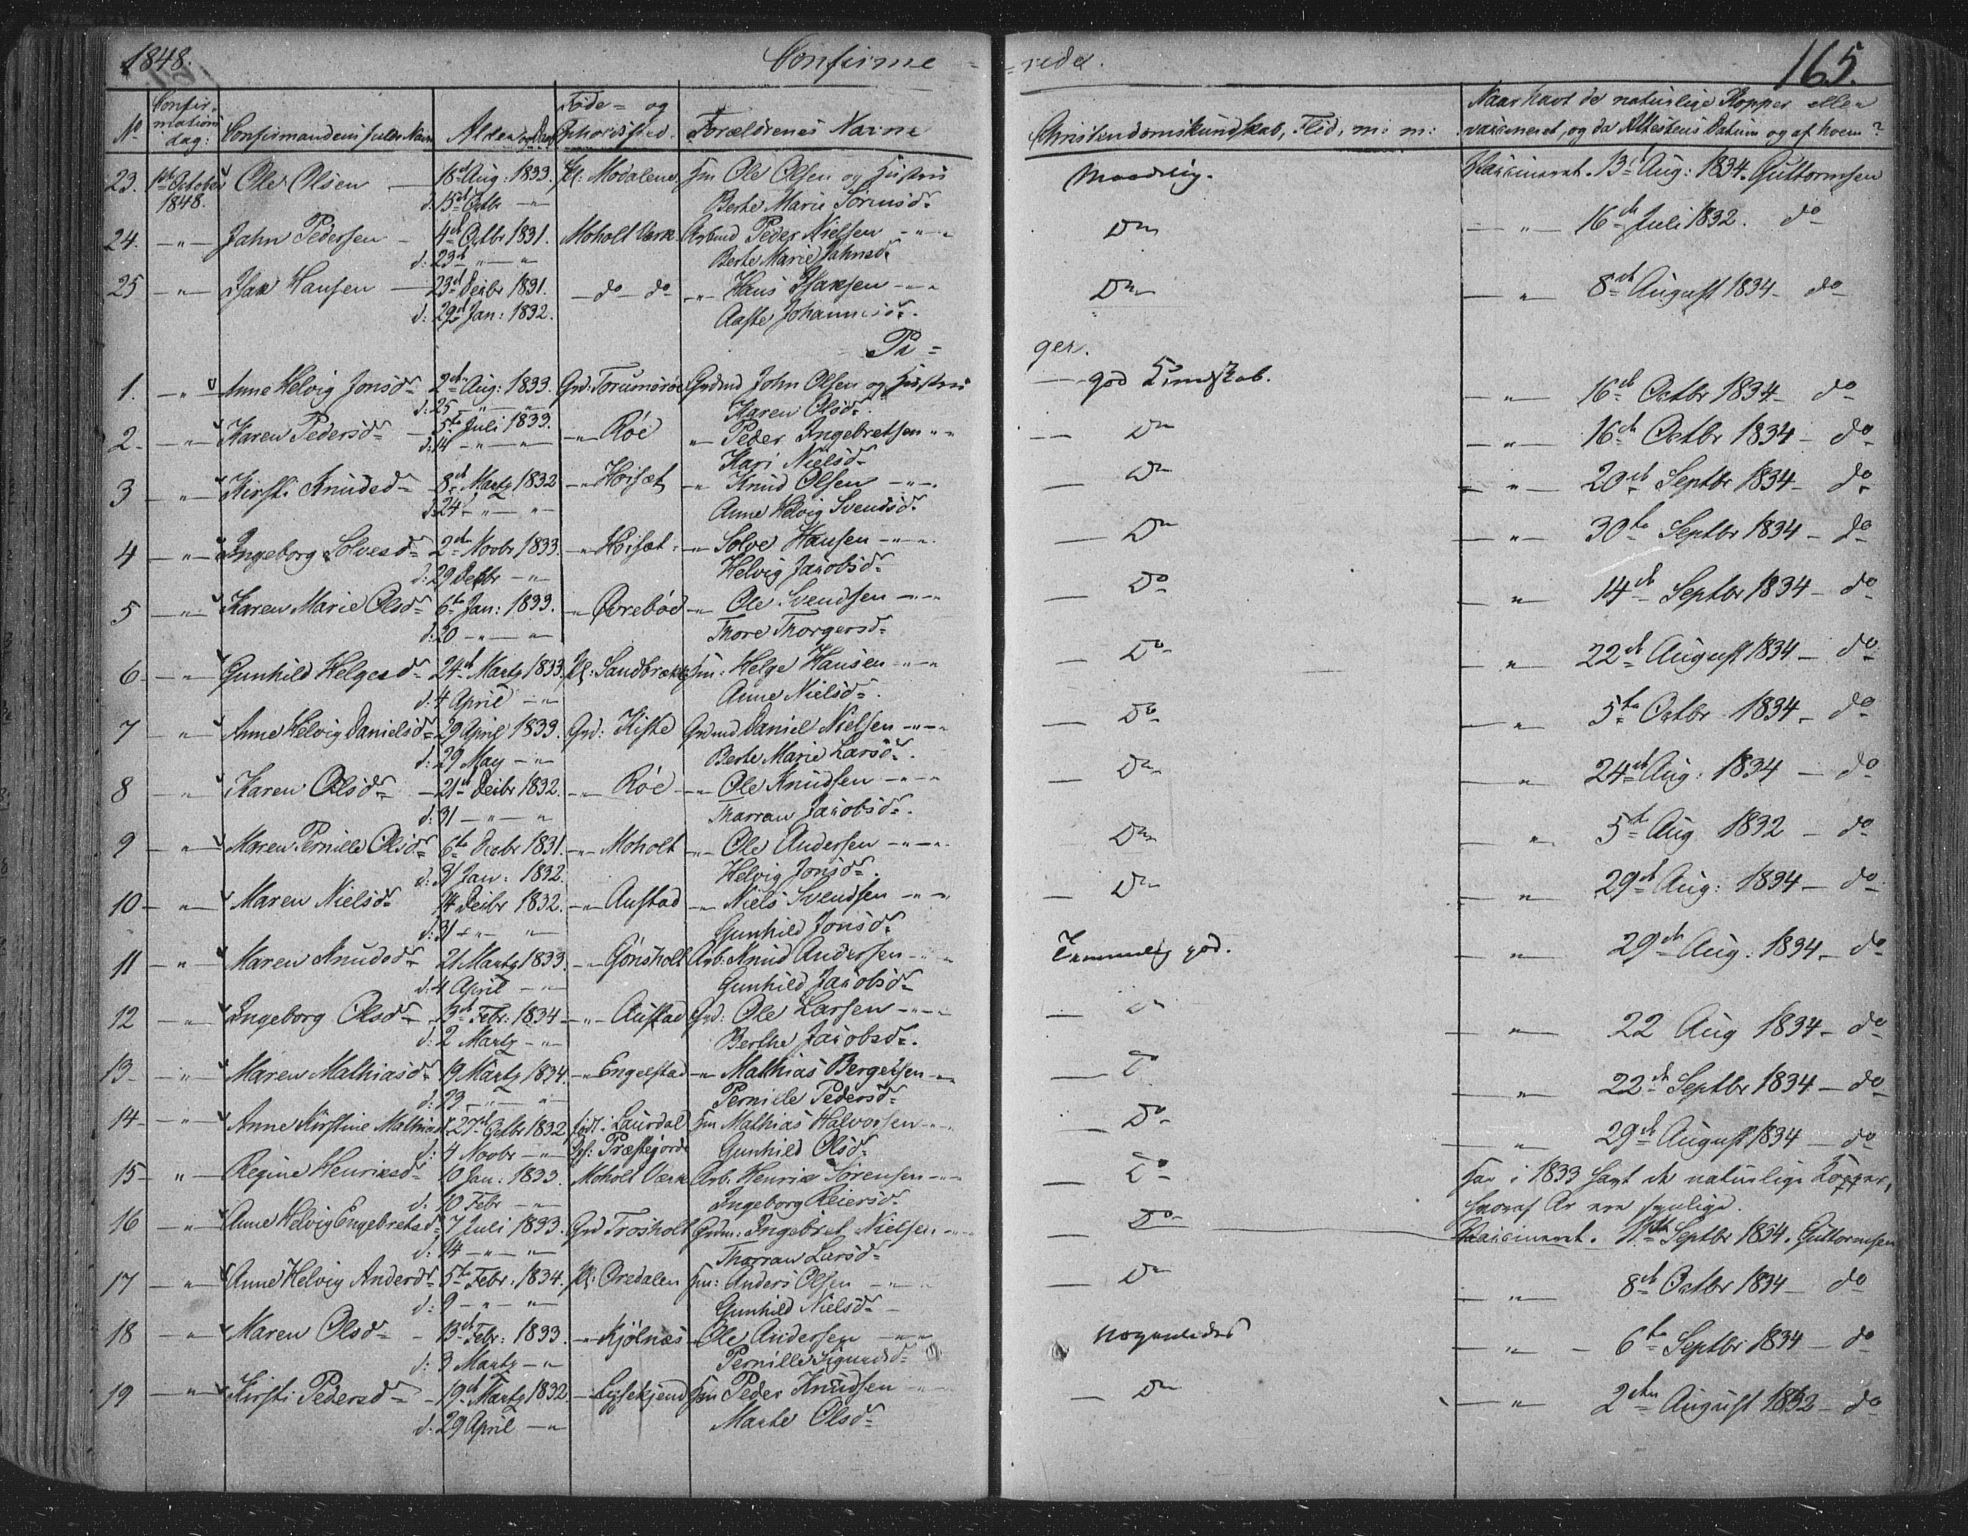 1848.
Confirme = = rede.
165.
No Confirmations dag: Confirmandens fulde Navn Alder og Daab Føde= og Opholdssted. Forældrenes Navne Christendomskundskab, Flid, m: m: Naar havt de naturlige Kopper eller vaccineret, og da Attestens Datum og af hvem?
23. 1ste October 1848. Ole Olsen 18de Aug: 1833. Pl: Modalene Hm Ole Olsen og Hustru Maadelig. Vaccineret. 13de Aug: 1834. Guttormsen
d: 15de Octbr -"- Berte Marie Sørensd.
24. -"- Jahn Pedersen 4de Octbr 1831. Moholt Værk Arbmd Peder Nielsen -"- Do -"- 16de Juli 1832. do
d: 23de -"- Berte Marie Jahnsd.
25 -"- Isak Hansen 23de Decbr 1831. -do- do -"- Hans Isaksen -"- Do -"- 8de August 1834- do
d: 29de Jan: 1832. Aaste Johannesd.
Pi = ger.
1. -"- Anne Helvig Jonsd. 2de Aug: 1833. Grd: Grdmd John Olsen og Hustru god Kundskab. -"- 16de Octbr 1834- do
d: 25 -"- Karen Olsd.
2- -"- Karen Pedersd. 5te Juli 1833. -"- Röe -"- Peder Ingebretsen -"- Do -"- 16de Octbr 1834- do
d: 14 -"- Kari Nielsd.
3 -"- Kirsti Knudsd- 8de Martz 1832 -"- Höisæt -"- Knud Olsen -"- Do -"- 20de Septbr 1834- do
d: 24 -"- Anne Helvig Svendsd.
4 -"- Ingeborg Solvesd- 2de Novbr 1833. -"- Höisæt. -"- Solve Hansen -"- Do -"- 30te Septbr 1834- do
d: 29 Decbr -"- Helvig Jacobsd.
5 -"- Karen Marie Olsd- 6te Jan: 1833. -"- Ovreböe -"- Ole Svendsen -"- Do -"- 14de Septbr 1834- do
d: 20 -"- Thore Thorgersd-
6- -"- Gunhild Helgesd- 24de Martz 1833. Pl: Sandbrække Hm: Helge Hansen -"- Do -"- 22de August 1834- do
d. 4 April -"- Anne Nielsd.
7 -"- Anne Helvig Danielsd- 29 April 1833. Grd: Kiste Grdmd Daniel Nielsen -"- Do -"- 5te Octbr 1834- do
d: 29 May -"- Berte Marie Larsd.
8 -"- Karen Olsd- 21de Decbr 1832. -"- Röe -"- Ole Knudsen -"- Do -"- 24de Aug: 1834 - do
d: 31 -"- Tharran Jacobsd.
9 -"- Maren Pernille Olsd- 6te Decbr 1831. -"- Moholt -"- Ole Andersen -"- Do -"- 5te Aug 1832 - do
d: 31 Jan: 1832. Helvig Jonsd.
10 -"- Maren Nielsd- 14 Decbr 1832. -"- Austad -"- Niels Svendsen -"- Do -"- 29de Aug: 1834- do
d: 31 -"- Gunhild Jonsd.
11 -"- Maren Knudsd- 21 Martz 1833. -"- Gönsholt Arb: Knud Andersen -"- Temmelig god. -"- 29de Aug: 1834- do
d: 4 April -"- Gunhild Jacobsd-
12 -"- Ingeborg Olsd- 3de Febr: 1834 -"- Austad Grd: Ole Larsen -"- -"- 22 Aug 1834- do
d: 2 Martz -"- Berthe Jacobsd.
13- -"- Maren Mathiasd- 19 Martz 1834. -"- Engelstad -"- Mathias Bergetsen -"- Do -"- 22de Septbr 1834- do
d: 29 -"- Pernille Pedersd-
14- -"- Anne Kirstine Mathiasd. 27de Octbr 1832 Födt: Laurdal Hm Mathias Halvorsen -"- Do -"- 29de August 1834 - do
d: 4 Novbr -"- Præstejorde Gunhild Olsd-
15- " Regine Henriksd- 10 Jan: 1833. Moholt Værk Arb: Henrik Sörensen -"- Do har i 1833 havt de naturlige Kopper,
d: 10 Febr -"- Ingeborg Reiersd- hvoraf Ar ere synlige.
16 -"- Anne Helvig Engebretsd- 7 Juli 1833. Grd Trosholt Grdm: Ingebret Nielsen -"- Do Vaccineret. 11te Septbr 1834. Guttormsen
d: 14 -"- Tharran Larsd-
17 -"- Anne Helvig Andersd- 5te Febr: 1834. Pl: Oredalen Hm: Anders Olsen -"- Do -"- 8de Octbr 1834 - do
d: 9 -"- Gunhild Nielsd-
18 -"- Maren Olsd- 13de Febr: 1833. -"- Kjölnæs -"- Ole Andersen -"- nogenledes -"- 6te Septbr 1834 - do
d: 3 Martz -"- Pernille Sigurdsd-
19 -"- Kirsti Pedersd- 19de Martz 1832. Hm Peder Knudsen -"- Do -"- 2den August 1832 - do
d: 29 April -"- Marte Olsd-